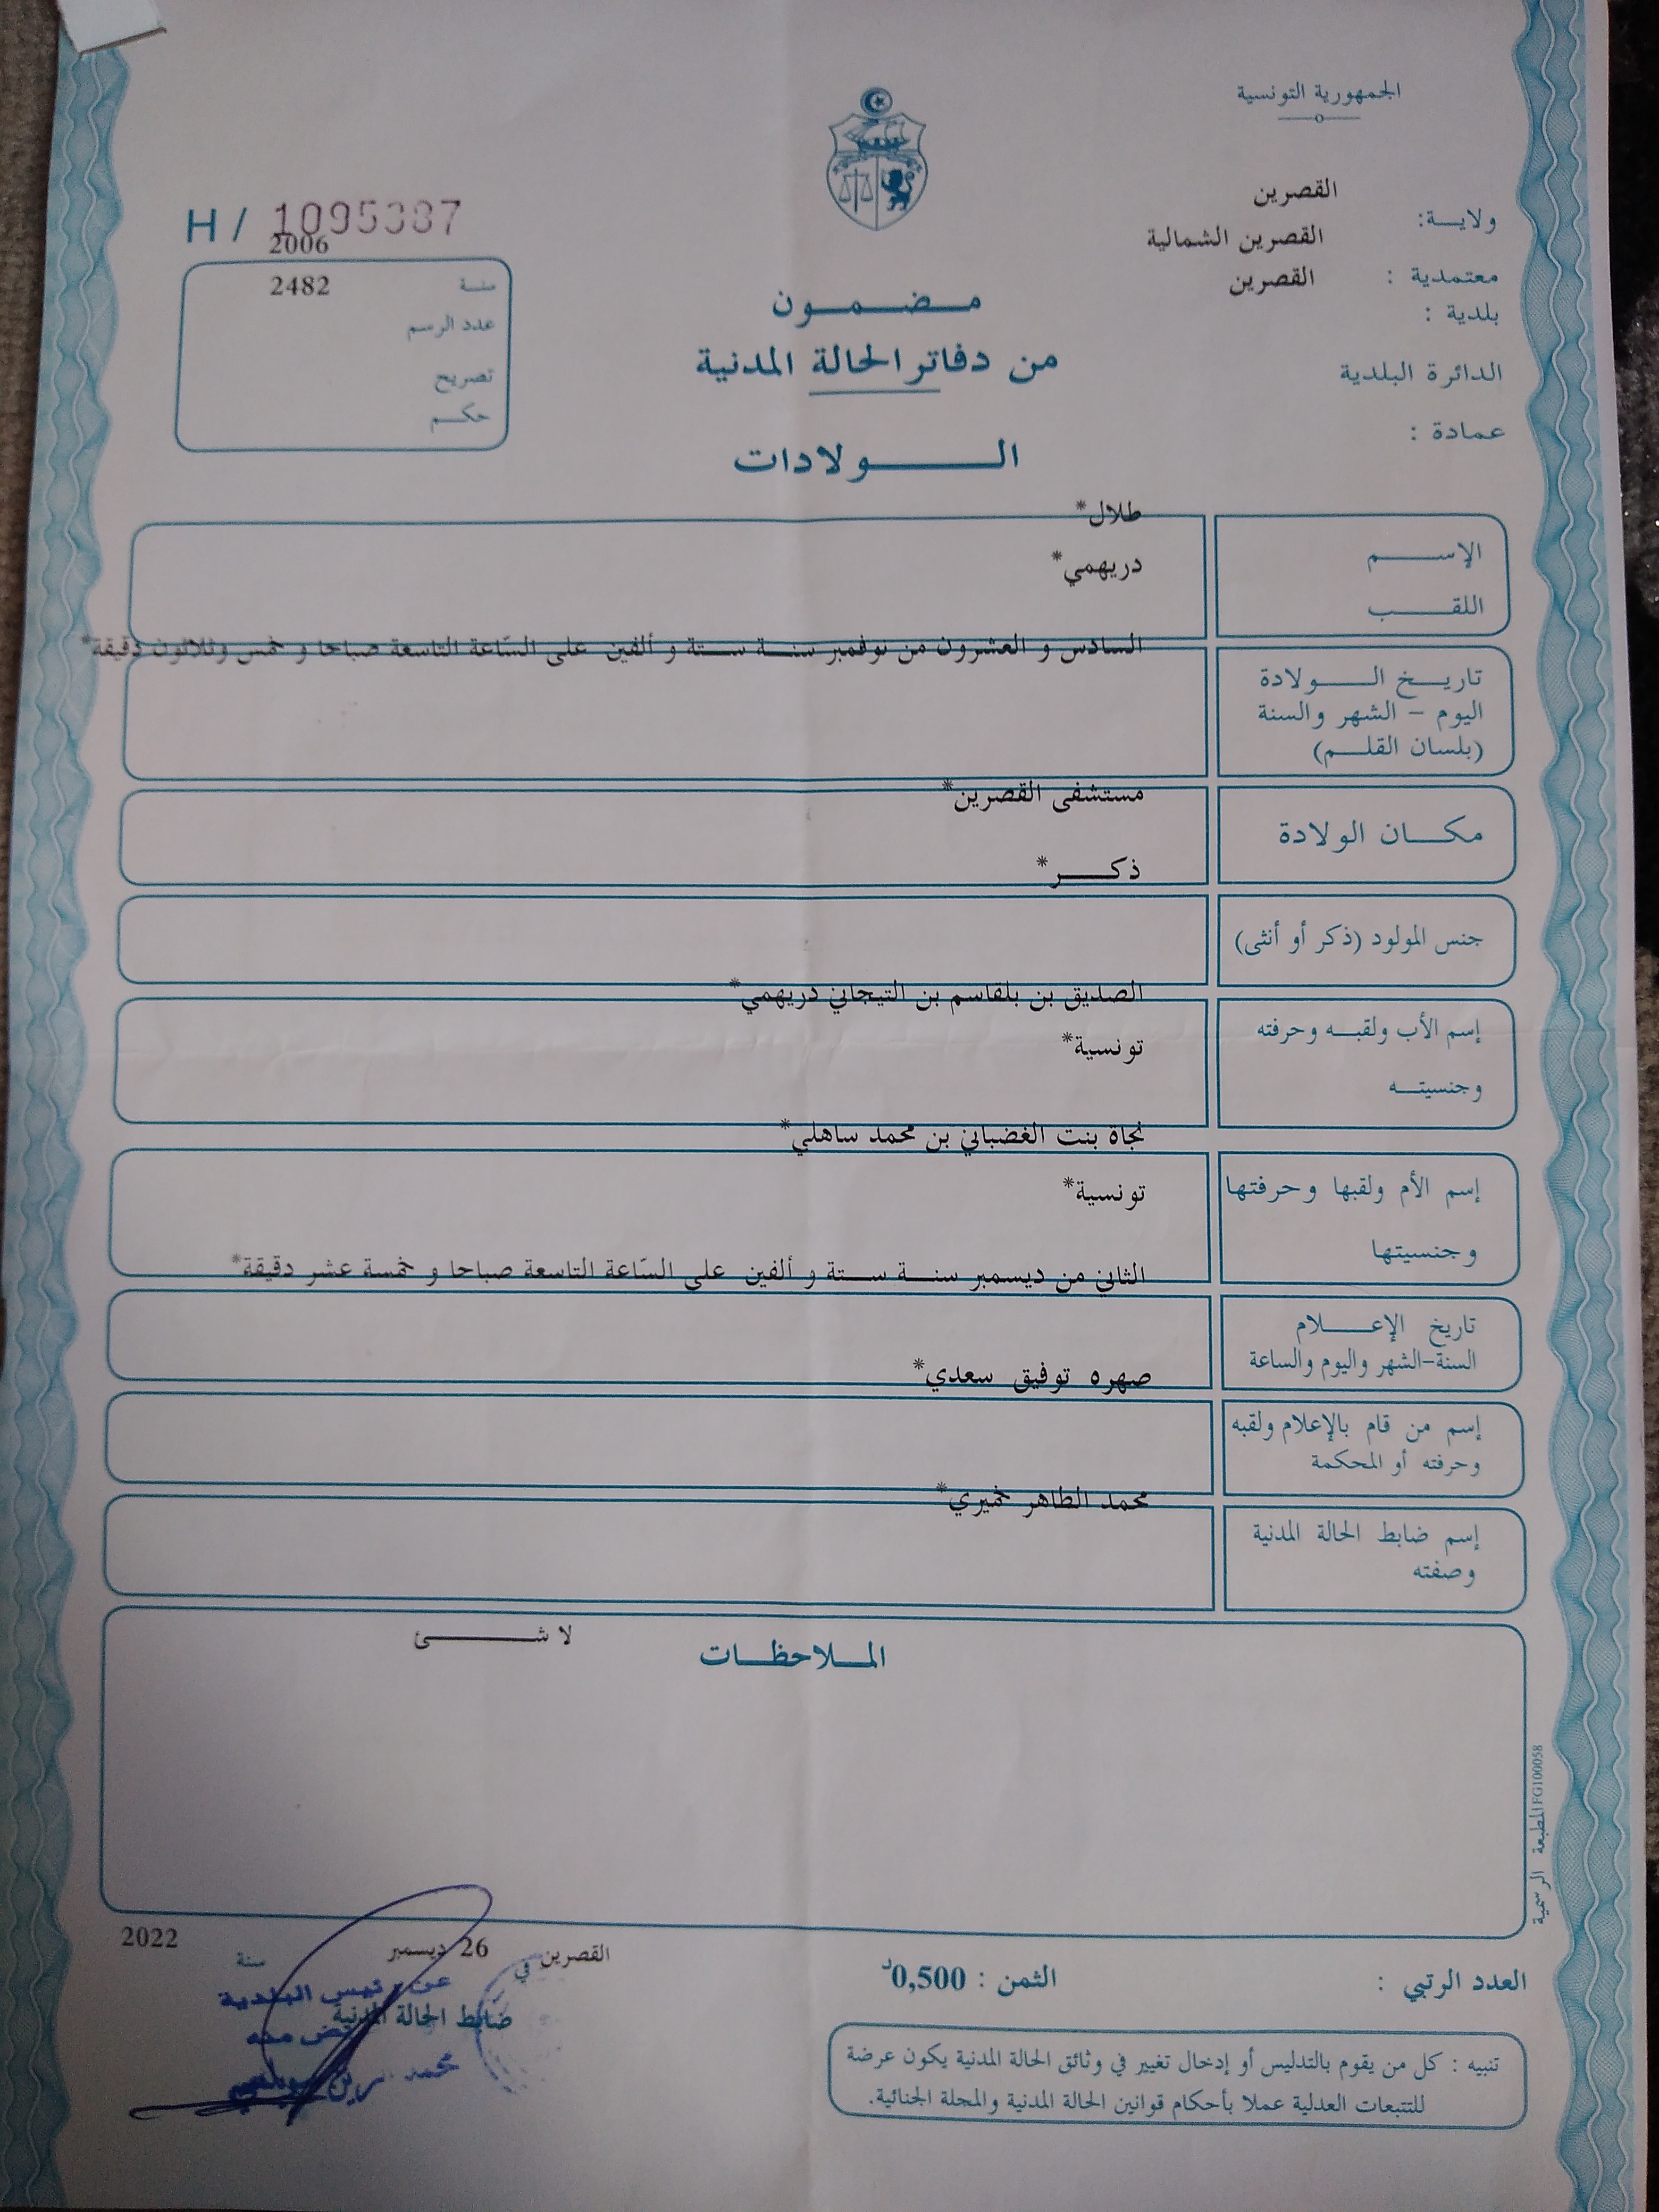 الجمهورية التونسية
ولايـة: القصرين
معتمدية : القصرين الشمالية
بلدية : القصرين
الدائرة البلدية
عمادة :
H / 1095387
2006
سنـة
2482
عدد الرسم
تصريح
حكـم
مـضـمـون
من دفاتر الحالة المدنية
الـولادات
الإسـم
طلال*
اللقـب
دريهمي*
تاريـخ الـولادة
اليوم – الشهر والسنة
(بلسان القلـم)
السادس و العشرون من نوفمبر سنـة ستـة و ألفين على السّاعة التاسعة صباحا و خمس وثلاثون دقيقة*
مكـان الولادة
مستشفى القصرين*
جنس المولود (ذكر أو أنثى)
ذكـر*
إسم الأب ولقبـه وحرفته
وجنسيتـه
الصديق بن بلقاسم بن التيجاني دريهمي*
تونسية*
إسم الأم ولقبها وحرفتها
وجنسيتها
نجاة بنت الغضباني بن محمد ساهلي*
تونسية*
تاريخ الإعـلام
السنة–الشهر واليوم والساعة
الثاني من ديسمبر سنـة ستـة و ألفين على السّاعة التاسعة صباحا و خمسة عشر دقيقة*
إسم من قام بالإعلام ولقبه
وحرفته أو المحكمة
صهره توفيق سعدي*
إسم ضابط الحالة المدنية
وصفته
محمد الطاهر خميري*
الملاحظـات
لا شـئ
المطبعة الرسمية FG100058
القصرين في 26 ديسمبر سنة 2022
عن رئيس البلدية
ضابط الحالة المدنية
محمد
العدد الرتبي :
الثمن : 0,500د
تنبيه : كل من يقوم بالتدليس أو إدخال تغيير في وثائق الحالة المدنية يكون عرضة
للتتبعات العدلية عملا بأحكام قوانين الحالة المدنية والمجلة الجنائية.